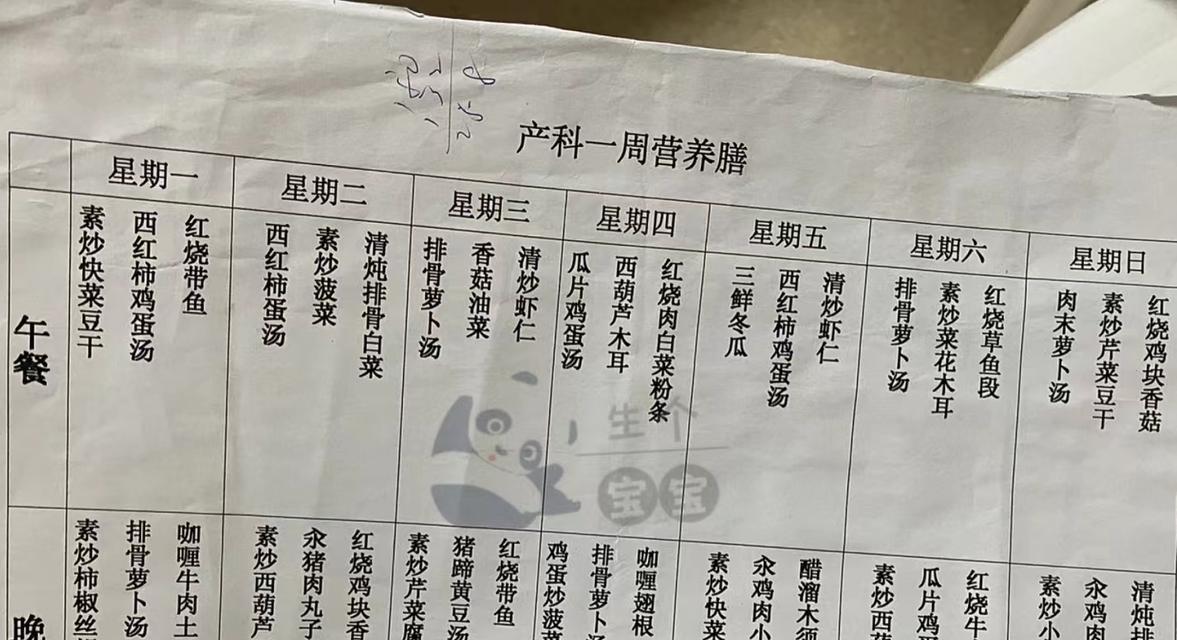 产科一周营养膳
星期一
星期二
星期三
星期四
星期五
星期六
星期日
午餐
红烧带鱼
西红柿鸡蛋汤
素炒快菜豆干
清炖排骨白菜
素炒菠菜
西红柿蛋汤
清炒虾仁
香菇油菜
排骨萝卜汤
红烧肉白菜粉条
西葫芦木耳
瓜片鸡蛋汤
清炒虾仁
西红柿鸡蛋汤
三鲜冬瓜
红烧草鱼段
素炒菜花木耳
排骨萝卜汤
红烧鸡块香菇
素炒芹菜豆干
肉末萝卜汤
生个
宝宝
晚
咖喱牛肉土
排骨萝卜汤
素炒柿椒丝
红烧鸡块香
汆猪肉丸子
素炒西葫芦
红烧带鱼
猪蹄黄豆汤
素炒芹菜腐
咖喱翅根
排骨萝卜汤
鸡蛋炒菠菜
醋溜木须
汆鸡肉小
素炒快菜
红烧牛
瓜片鸡蛋
素炒西葫
清炖排
汆鸡肉
素炒小